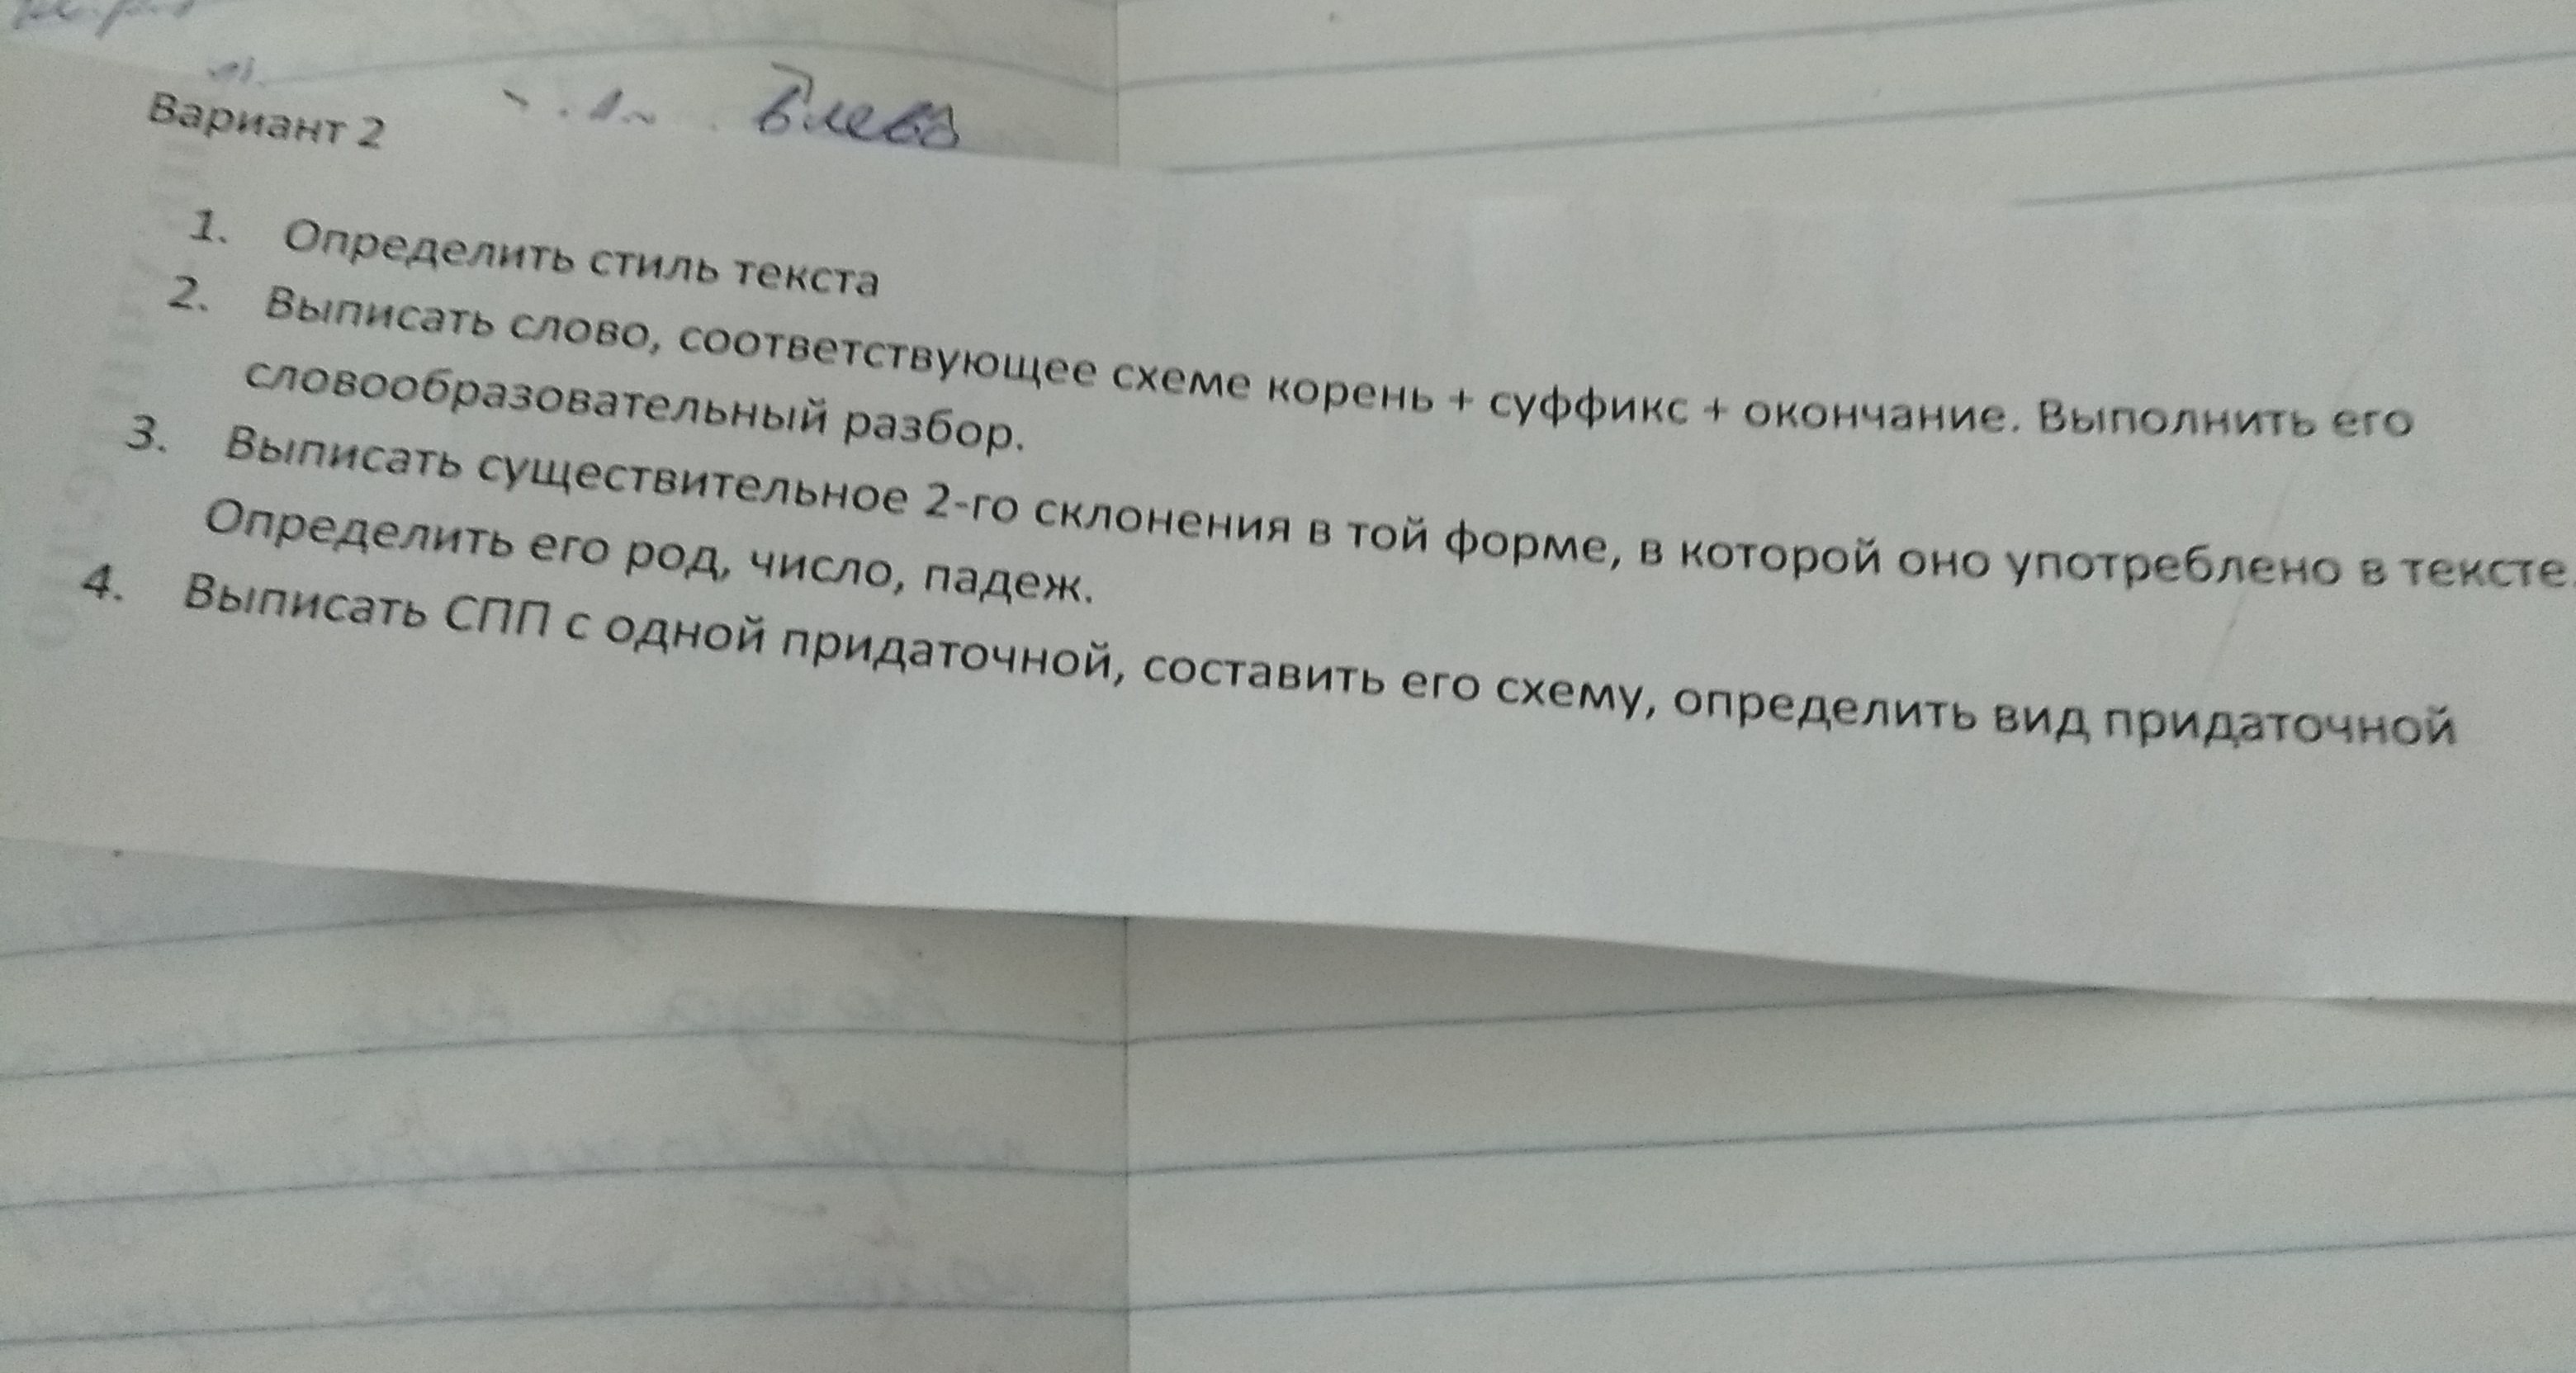 влево
Вариант 2
1. Определить стиль текста
2. Выписать слово, соответствующее схеме корень + суффикс + окончание. Выполнить его
словообразовательный разбор.
3. Выписать существительное 2-го склонения в той форме, в которой оно употреблено в тексте
Определить его род, число, падеж.
4. Выписать СПП с одной придаточной, составить его схему, определить вид придаточной